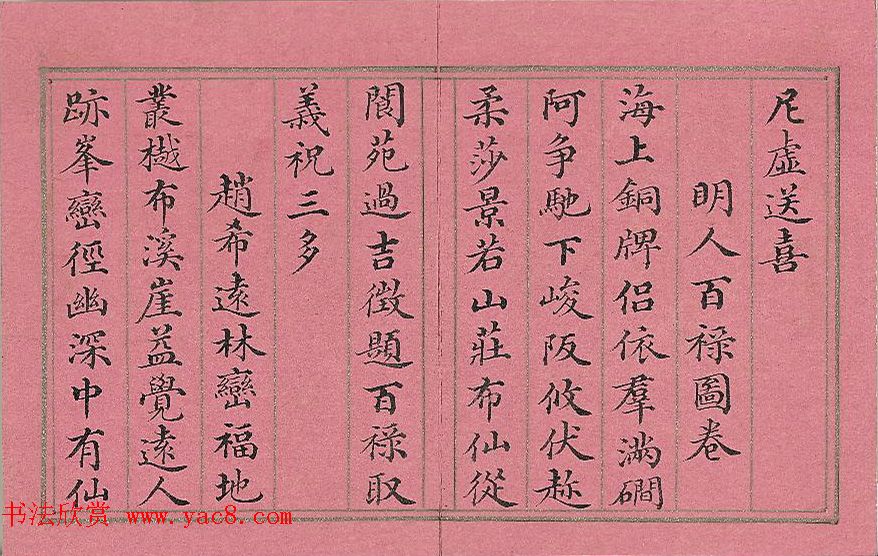 尼虛送喜
明人百祿圖卷
海上銅牌侶依羣滿磵
阿争馳下峻阪攸伏趂
柔莎景若山莊布仙從
閬苑過吉徵題百祿取
義祝三多
趙希遠林巒福地
叢樾布溪崖益覺遠人
跡峯巒徑幽深中有仙
书法欣赏 www.yac8.com